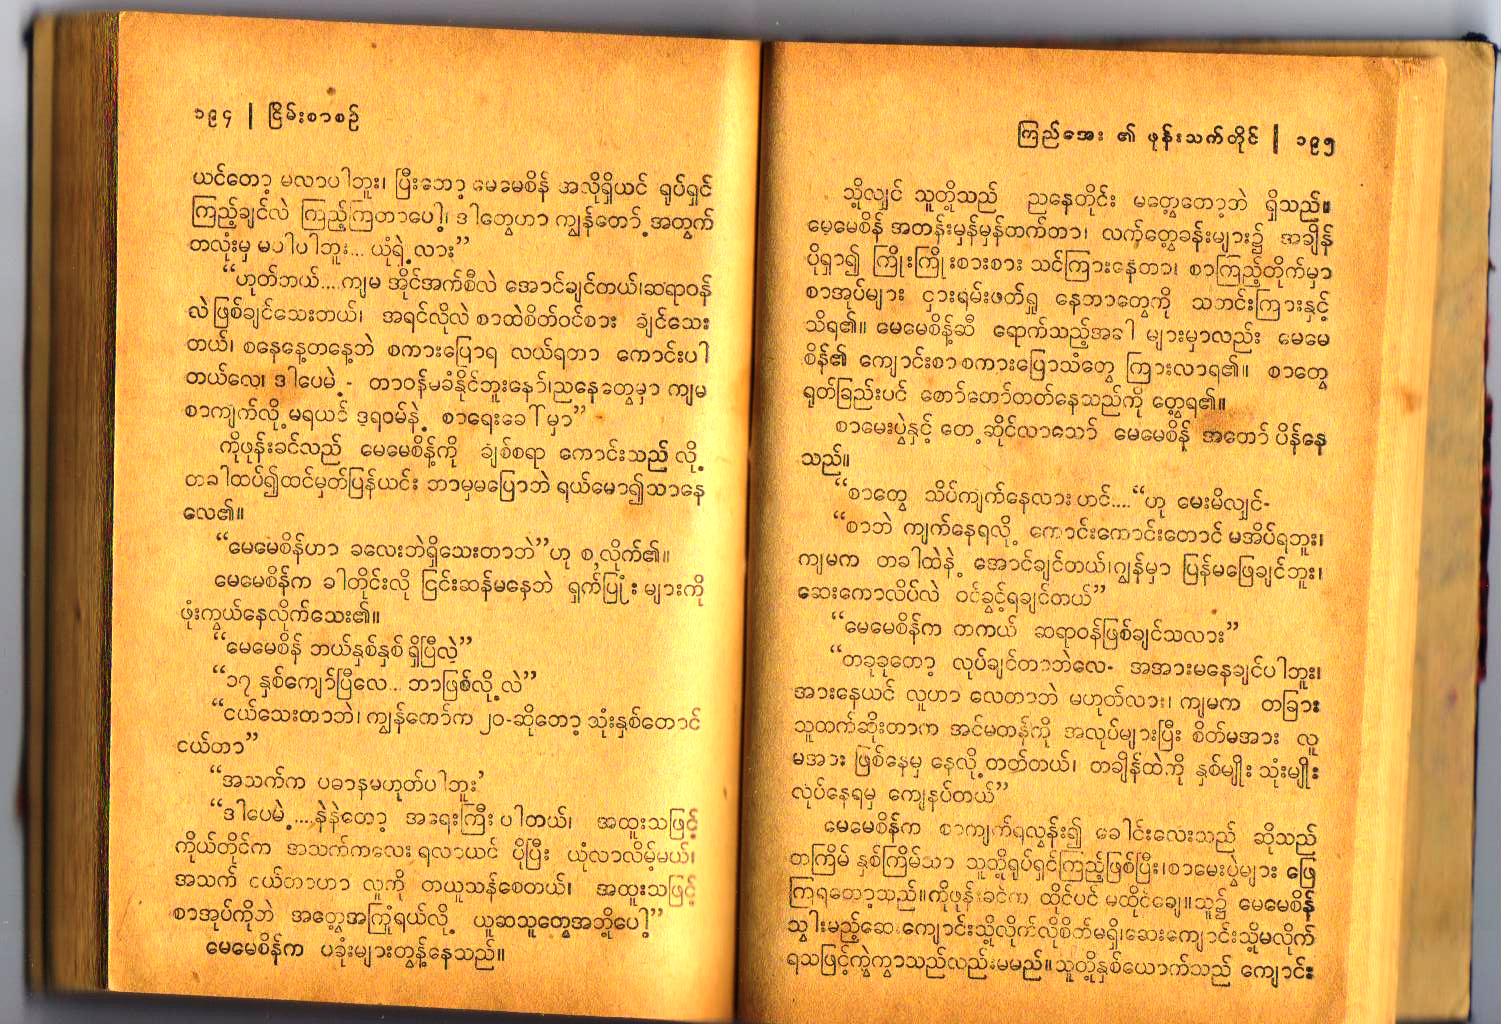 ၁၉၄ | ငြိမ်းစာစဉ်
ယင်တော့ မလာပါဘူး၊ ပြီးတော့ မေမေစိန် အလိုရှိယင် ရုပ်ရှင်
ကြည့်ချင်လဲ ကြည့်ကြတာပေါ့၊ ဒါတွေဟာ ကျွန်တော့်အတွက်
တလုံးမှ မပါပါဘူး... ယုံရဲ့လား”
“ဟုတ်ဘယ်....ကျမ အိုင်အက်စီလဲ အောင်ချင်တယ်၊ဆရာဝန်
လဲဖြစ်ချင်သေးတယ်၊ အရင်လိုလဲ စာထဲစိတ်ဝင်စား ချင်သေး
တယ်၊ စနေနေ့တနေ့ဘဲ စကားပြောရ လယ်ရတာ ကောင်းပါ
တယ်လေ၊ ဒါပေမဲ့ - တာဝန်မခံနိုင်ဘူးနော်၊ညနေတွေမှာ ကျမ
စာကျက်လို့မရယင် ဒုရဝမ်နဲ့ စာရေးခေါ်မှာ”
ကိုဖုန်းခင်လည် မေမေစိန့်ကို ချစ်စရာ ကောင်းသည် လို့
တခါထပ်၍ထင်မှတ်ပြန်ယင်း ဘာမှမပြောဘဲ ရယ်မော၍သာနေ
လေ၏။
“မေမေစိန်ဟာ ခလေးဘဲရှိသေးတာဘဲ”ဟု စ,လိုက်၏။
မေမေစိန်က ခါတိုင်းလို ငြင်းဆန်မနေဘဲ ရှက်ပြုံး များကို
ဖုံးကွယ်နေလိုက်သေး၏။
“မေမေစိန် ဘယ်နှစ်နှစ်ရှိပြီလဲ”
“၁၇ နှစ်ကျော်ပြီလေ... ဘာဖြစ်လို့လဲ”
“ငယ်သေးတာဘဲ၊ ကျွန်တော်က ၂၀-ဆိုတော့ သုံးနှစ်တောင်
ငယ်တာ”
“အသက်က ပဓာနမဟုတ်ပါဘူး’
“ဒါပေမဲ့....နဲနဲတော့ အရေးကြီး ပါတယ်၊ အထူးသဖြင့်
ကိုယ်တိုင်က အသက်ကလေး ရလာယင် ပိုပြီး ယုံလာလိမ့်မယ်၊
အသက် ငယ်တာဟာ လူကို တယူသန်စေတယ်၊ အထူးသဖြင့်
စာအုပ်ကိုဘဲ အတွေ့အကြုံရယ်လို့ ယူဆသူတွေအဘို့ပေါ့”
မေမေစိန်က ပခုံးများတွန့်နေသည်။
ကြည်အေး ၏ ဖုန်းသက်တိုင် | ၁၉၅
သို့လျှင် သူတို့သည် ညနေတိုင်း မတွေ့တော့ဘဲ ရှိသည်။
မေမေစိန် အတန်းမှန်မှန်တက်တာ၊ လက်တွေ့ခန်းများ၌ အချိန်
ပိုရှာ၍ ကြိုးကြိုးစားစား သင်ကြားနေတာ၊ စာကြည့်တိုက်မှာ
စာအုပ်များ ငှားရမ်းဖတ်ရှု နေတာတွေကို သတင်းကြားနှင့်
သိရ၏။ မေမေစိန့်ဆီ ရောက်သည့်အခါ များမှာလည်း မေမေ
စိန်၏ ကျောင်းစာစကားပြောသံတွေ ကြားလာရ၏။ စာတွေ
ရွတ်ခြည်းပင် စောင်တောတတ်နေသည်ကို တွေ့ရ၏။
စာမေးပွဲနှင့် တေ့ဆိုင်လာသော် မေမေစိန့် အတော် ပိန်နေ
သည်။
“စာတွေ သိပ်ကျက်နေလား ဟင်....“ဟု မေးမိလျှင်-
“စာဘဲ ကျက်နေရလို့ ကောင်းကောင်းတောင် မအိပ်ရဘူး၊
ကျမက တခါထဲနဲ့ အောင်ချင်တယ်၊ဂျွန်မှာ ပြန်မဖြေချင်ဘူး၊
ဆေးကောလိပ်လဲ ဝင်ခွင့်ရချင်တယ်”
“မေမေစိန်က တကယ် ဆရာဝန်ဖြစ်ချင်သလား”
“တခုခုတော့ လုပ်ချင်တာဘဲလေ- အအားမနေချင်ပါဘူး၊
အားနေယင် လူဟာ လေတာဘဲ မဟုတ်လား၊ ကျမက တခြား
သူထက်ဆိုးတာက အင်မတန်ကို အလုပ်များပြီး စိတ်မအား လူ
မအား ဖြစ်နေမှ နေလို့တတ်တယ်၊ တချိန်ထဲကို နှစ်မျိုး သုံးမျိုး
လုပ်နေရမှ ကျေနပ်တယ်”
မေမေစိန်က စာကျက်ရလွန်း၍ ခေါင်းလေးသည် ဆိုသည်
တကြိမ် နှစ်ကြိမ်သာ သူတို့ရုပ်ရှင်ကြည့်ဖြစ်ပြီး၊စာမေးပွဲများ ဖြေ
ကြရတော့သည်။ကိုဖုန်းခင်က ထိုင်ပင် မထိုင်ချေ။သူ၌ မေမေစိန်
သွားမည့်ဆေးကျောင်းသို့လိုက်လိုစိတ်မရှိ၊ဆေးကျောင်းသို့မလိုက်
ရသဖြင့်ကွဲကွာသည်လည်းမမည်။သူတို့နှစ်ယောက်သည် ကျောင်း